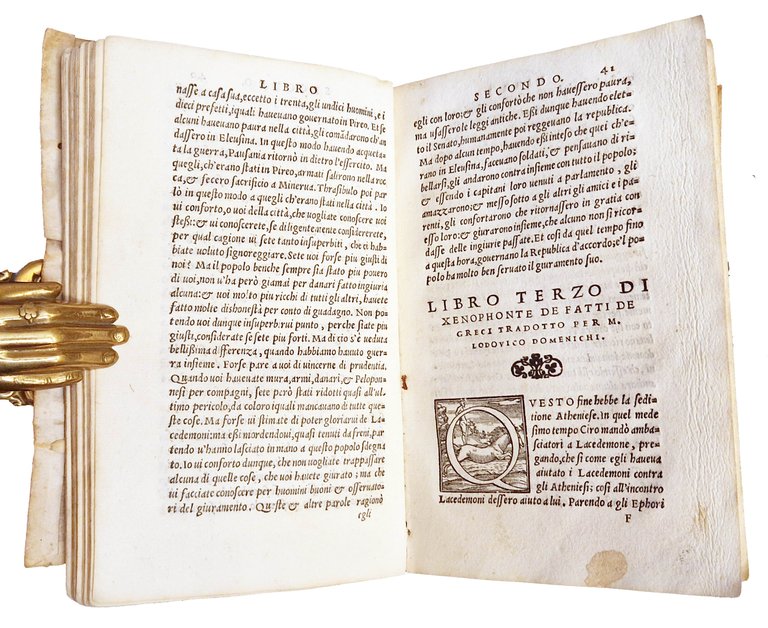 LIBRO
nasse a casa sua, eccetto i trenta, gli undici huomini, e i
dieci prefetti, i quali haueuano gouernato in Pireo. Et se
alcuni haueuano paura nella città, gli comādarono ch'an
dassero in Eleusina. In questo modo hauendo acqueta-
ta la guerra, Pausania ritornò in dietro l'essercito. Ma
quegli, ch'erano stati in Pireo, armati salirono nella roc
ca, & fecero sacrificio a Minerua. Thrasibulo poi par
lò in questo modo a quegli ch'erano stati nella città. Io
ui conforto, o uoi della città, che uogliate conoscere uoi
stessi: & ui conoscerete, se diligentemente considererete,
per qual cagione ui sete tanto insuperbiti, che ci hab-
biate uoluto signoreggiare. Sete uoi forse piu giusti di
noi? Ma il popolo benche sempre sia stato piu pouero
di uoi, non u'ha però giamai per danari fatto ingiuria
alcuna: & uoi molto piu ricchi di tutti gli altri, hauete
fatto molte dishonestà per conto di guadagno. Non po
tendo uoi dunque insuperbirui punto, perche siate piu
giusti, considerate se sete piu forti. Ma di ciò s'è ueduta
bellissima differenza, quando habbiamo hauuto guer
ra insieme. Forse pare a uoi di uincerne di prudentia.
Quando uoi haueuate mura, armi, danari, & Pelopon
nesi per compagni, sete però stati ridotti quasi all'ul
timo pericolo, da coloro iquali mancauano di tutte que
ste cose. Ma forse ui stimate di poter gloriarui de La-
cedemoni: ma essi mordendoui, quasi tenuti da freni, par
tendo u'hanno lasciato in mano a questo popolo sdegna
to. Io ui conforto dunque, che non uogliate trappassare
alcuna di quelle cose, che uoi hauete giurato; ma che
ui facciate conoscere per huomini buoni & osseruato-
ri del giuramento. Queste & altre parole ragionò
egli
SECONDO. 41
egli con loro: & gli confortò che non hauessero paura,
ma usassero le leggi antiche. Essi dunque hauendo elet-
to il Senato, humanamente poi reggeuano la republica.
Ma dopo alcun tempo, hauendo essi inteso che quei ch'e-
rano in Eleusina, faceuano soldati, & pensauano di ri-
bellarsi, gli andarono contra insieme con tutto il popolo;
& essendo i capitani loro uenuti a parlamento, gli
amazzarono: & messo sotto a gli altri gli amici e i pa-
renti, gli confortarono che ritornassero in gratia con
esso loro: & giurarono insieme, che alcuno non si ricor-
dasse delle ingiurie passate. Et così da quel tempo fino
a questa hora, gouernano la Republica d'accordo; e'l po-
polo ha molto ben seruato il giuramento suo.
LIBRO TERZO DI
XENOPHONTE DE FATTI DE
GRECI TRADOTTO PER M.
LODOVICO DOMENICHI.
QVESTO fine hebbe la sedi
tione Atheniese. in quel mede
simo tempo Ciro mandò amba-
sciatori a Lacedemone, pre-
gando, che si come egli haueua
aiutato i Lacedemoni contra
gli Atheniesi; così all'incontro
Lacedemoni dessero aiuto a lui. Parendo a gli Ephori
F